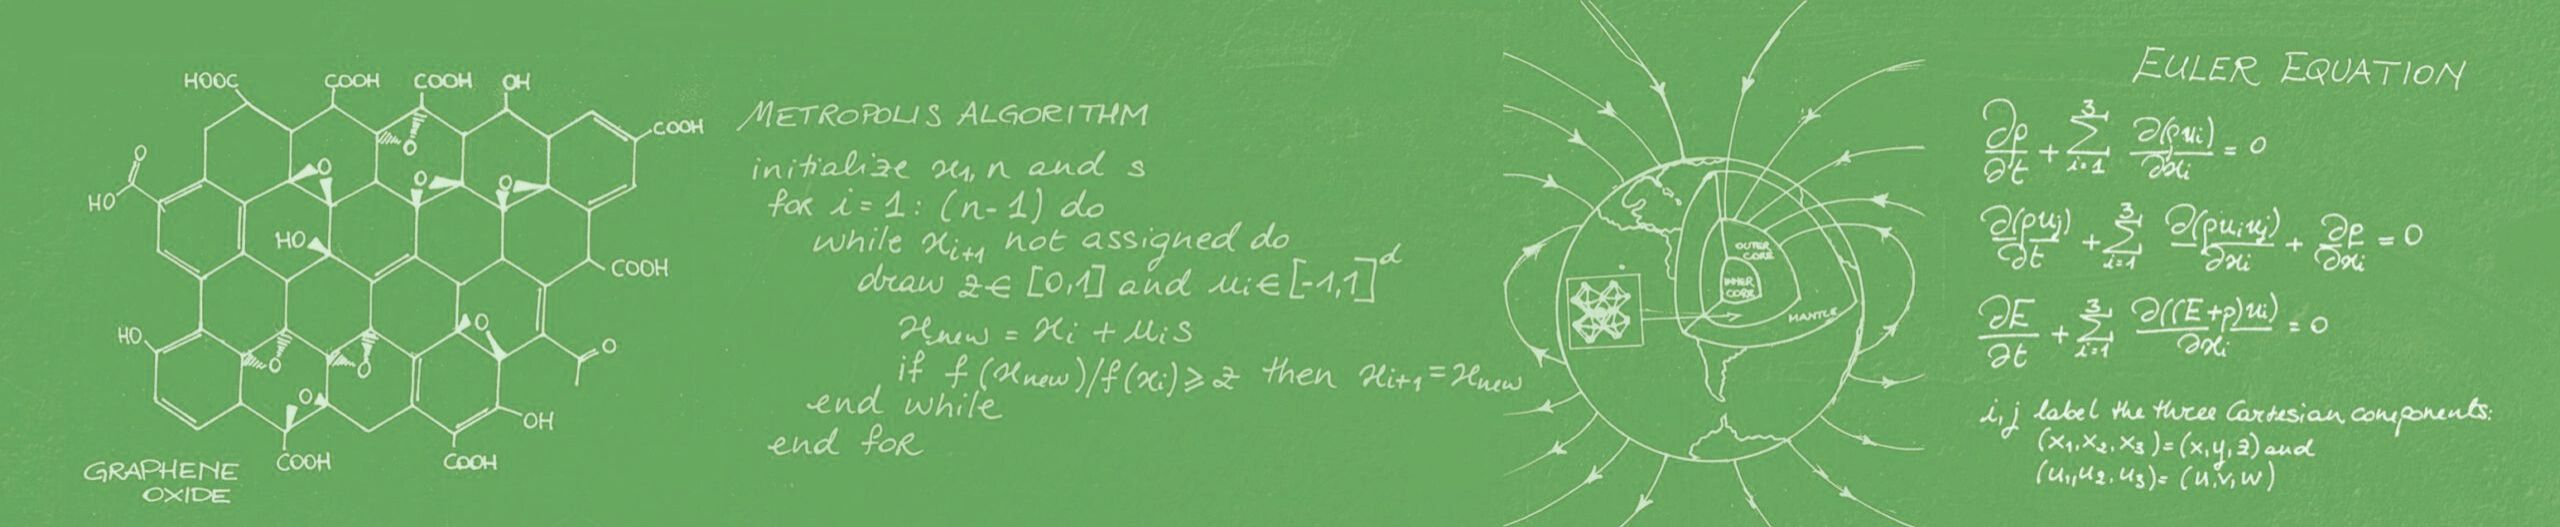 HOOC
COOH
COOH
OH
COOH
O
O
HO
O
O
O
HO
COOH
HO
O
O
O
O
O
OH
COOH
COOH
GRAPHENE
OXIDE
METROPOLIS ALGORITHM
initialize x₁, n and s
for i = 1 : (n-1) do
while xᵢ₊₁ not assigned do
draw z ∈ [0,1] and uᵢ ∈ [-1,1]ᵈ
x_new = xᵢ + uᵢs
if f(x_new)/f(xᵢ) ⩾ z then xᵢ₊₁ = x_new
end while
end for
OUTER
CORE
INNER
CORE
MANTLE
EULER EQUATION
∂ρ/∂t + ∑³ᵢ₌₁ ∂(ρuᵢ)/∂xᵢ = 0
∂(ρuⱼ)/∂t + ∑³ᵢ₌₁ ∂(ρuᵢuⱼ)/∂xᵢ + ∂p/∂xᵢ = 0
∂E/∂t + ∑³ᵢ₌₁ ∂((E+p)uᵢ)/∂xᵢ = 0
i, j label the three Cartesian components:
(x₁, x₂, x₃) = (x, y, z) and
(u₁, u₂, u₃) = (u, v, w)